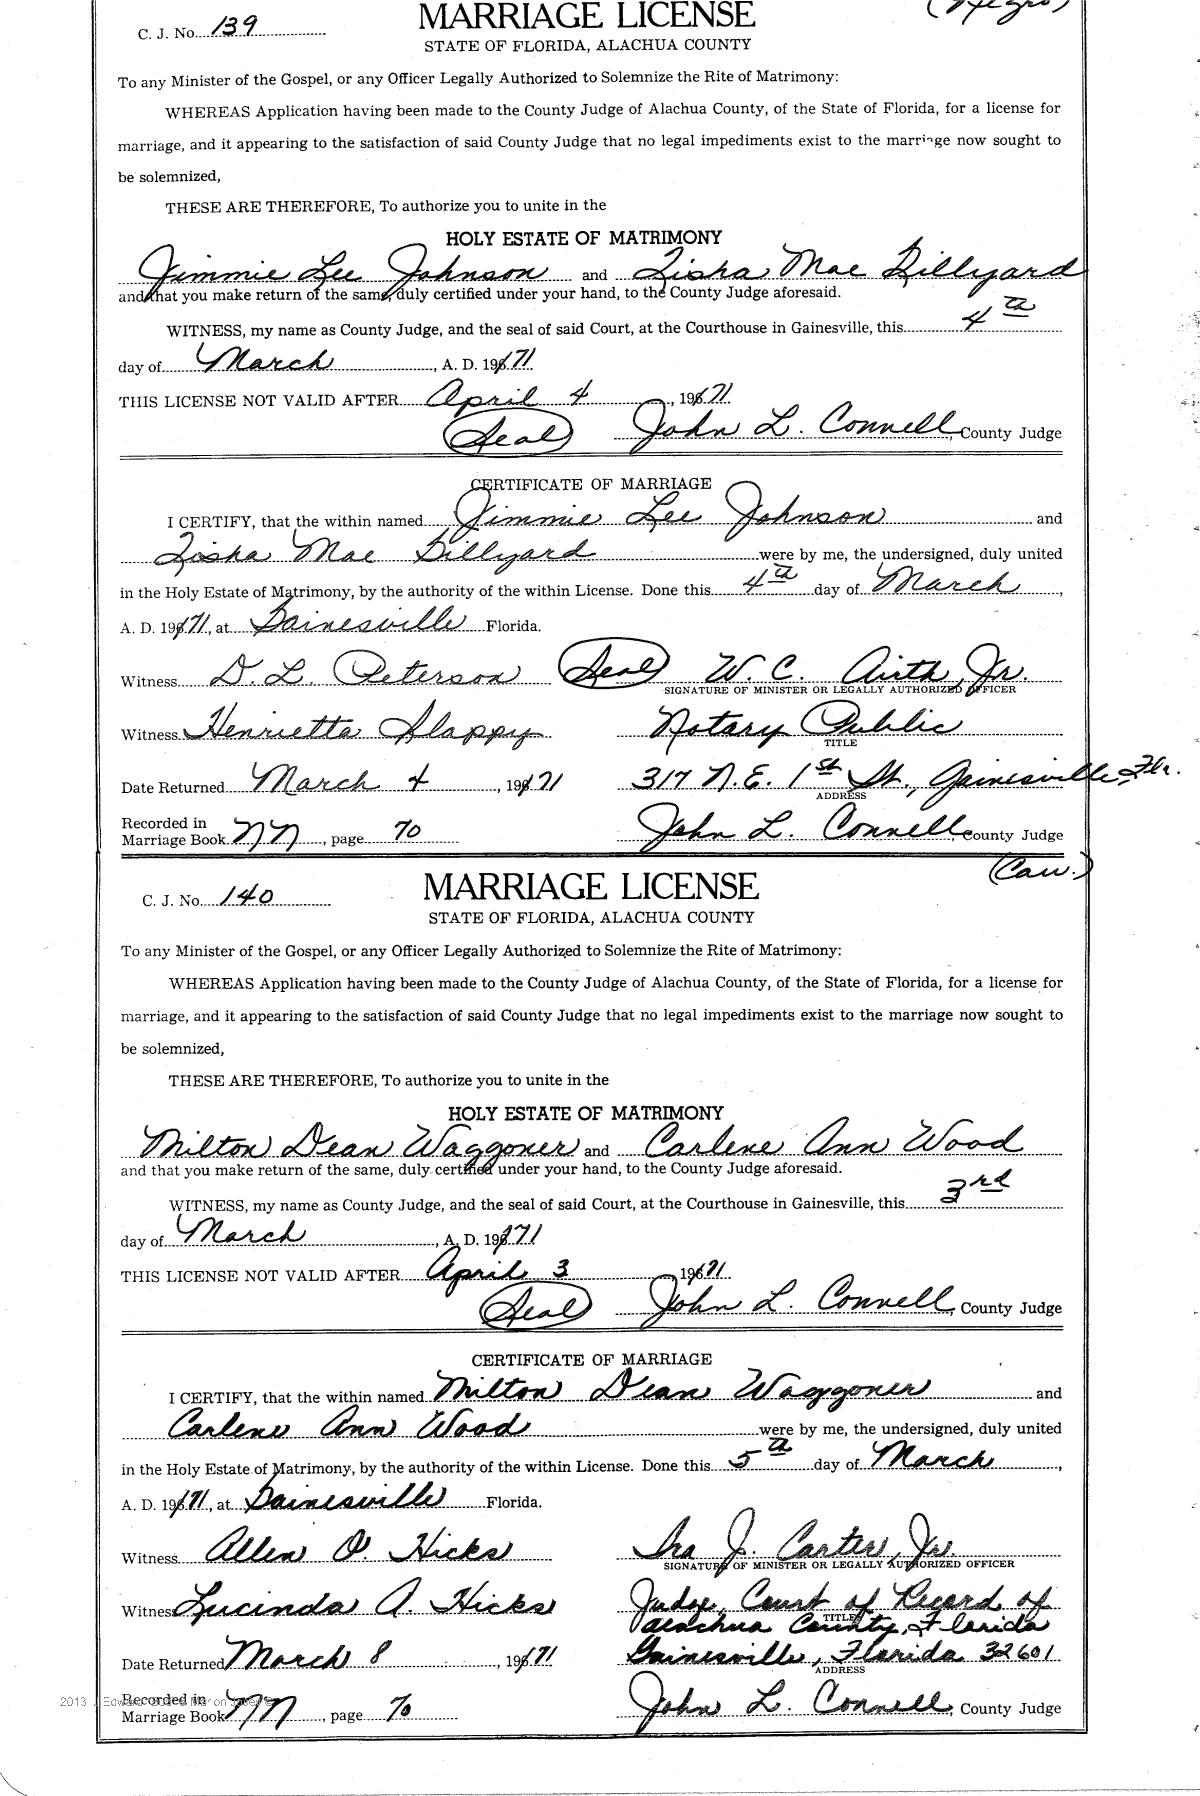 (Negro)
C. J. No. 139 MARRIAGE LICENSE
STATE OF FLORIDA, ALACHUA COUNTY
To any Minister of the Gospel, or any Officer Legally Authorized to Solemnize the Rite of Matrimony:
WHEREAS Application having been made to the County Judge of Alachua County, of the State of Florida, for a license for
marriage, and it appearing to the satisfaction of said County Judge that no legal impediments exist to the marriage now sought to
be solemnized,
THESE ARE THEREFORE, To authorize you to unite in the
HOLY ESTATE OF MATRIMONY
Jimmie Lee Johnson and Zisha Mae Dillyard
and that you make return of the same, duly certified under your hand, to the County Judge aforesaid.
WITNESS, my name as County Judge, and the seal of said Court, at the Courthouse in Gainesville, this 4th
day of March, A. D. 1971.
THIS LICENSE NOT VALID AFTER April 4, 1971.
(Seal) John L. Connell, County Judge
CERTIFICATE OF MARRIAGE
I CERTIFY, that the within named Jimmie Lee Johnson and
Zisha Mae Dillyard were by me, the undersigned, duly united
in the Holy Estate of Matrimony, by the authority of the within License. Done this 4th day of March,
A. D. 1971, at Gainesville Florida.
Witness D. L. Peterson (Seal) W. C. Airth, Jr.
SIGNATURE OF MINISTER OR LEGALLY AUTHORIZED OFFICER
Witness Henrietta Slappy Notary Public
TITLE
Date Returned March 4, 1971 317 N.E. 1st St., Gainesville, Fla.
ADDRESS
Recorded in
Marriage Book NN, page 70 John L. Connell, County Judge
(Cau.)
C. J. No. 140 MARRIAGE LICENSE
STATE OF FLORIDA, ALACHUA COUNTY
To any Minister of the Gospel, or any Officer Legally Authorized to Solemnize the Rite of Matrimony:
WHEREAS Application having been made to the County Judge of Alachua County, of the State of Florida, for a license for
marriage, and it appearing to the satisfaction of said County Judge that no legal impediments exist to the marriage now sought to
be solemnized,
THESE ARE THEREFORE, To authorize you to unite in the
HOLY ESTATE OF MATRIMONY
Milton Dean Waggoner and Carlene Ann Wood
and that you make return of the same, duly certified under your hand, to the County Judge aforesaid.
WITNESS, my name as County Judge, and the seal of said Court, at the Courthouse in Gainesville, this 3rd
day of March, A. D. 1971
THIS LICENSE NOT VALID AFTER April 3 1971.
(Seal) John L. Connell, County Judge
CERTIFICATE OF MARRIAGE
I CERTIFY, that the within named Milton Dean Waggoner and
Carlene Ann Wood were by me, the undersigned, duly united
in the Holy Estate of Matrimony, by the authority of the within License. Done this 5th day of March,
A. D. 1971, at Gainesville Florida.
Witness Allen O. Hicks Ira J. Carter, Jr.
SIGNATURE OF MINISTER OR LEGALLY AUTHORIZED OFFICER
Witness Lucinda A. Hicks Judge, Court of Record of
Alachua County, Florida
TITLE
Date Returned March 8, 1971 Gainesville, Florida 32601
ADDRESS
Recorded in
Marriage Book NN, page 70 John L. Connell, County Judge
2013